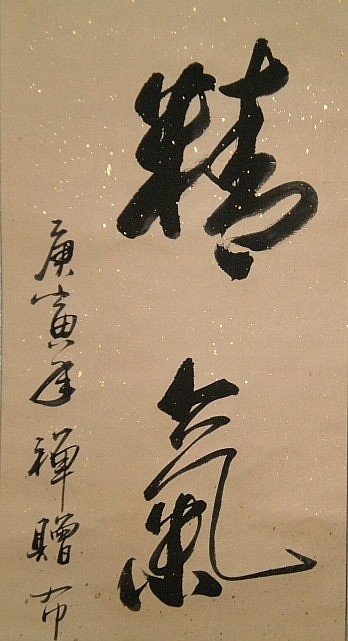 精氣
庚寅年禪贈布